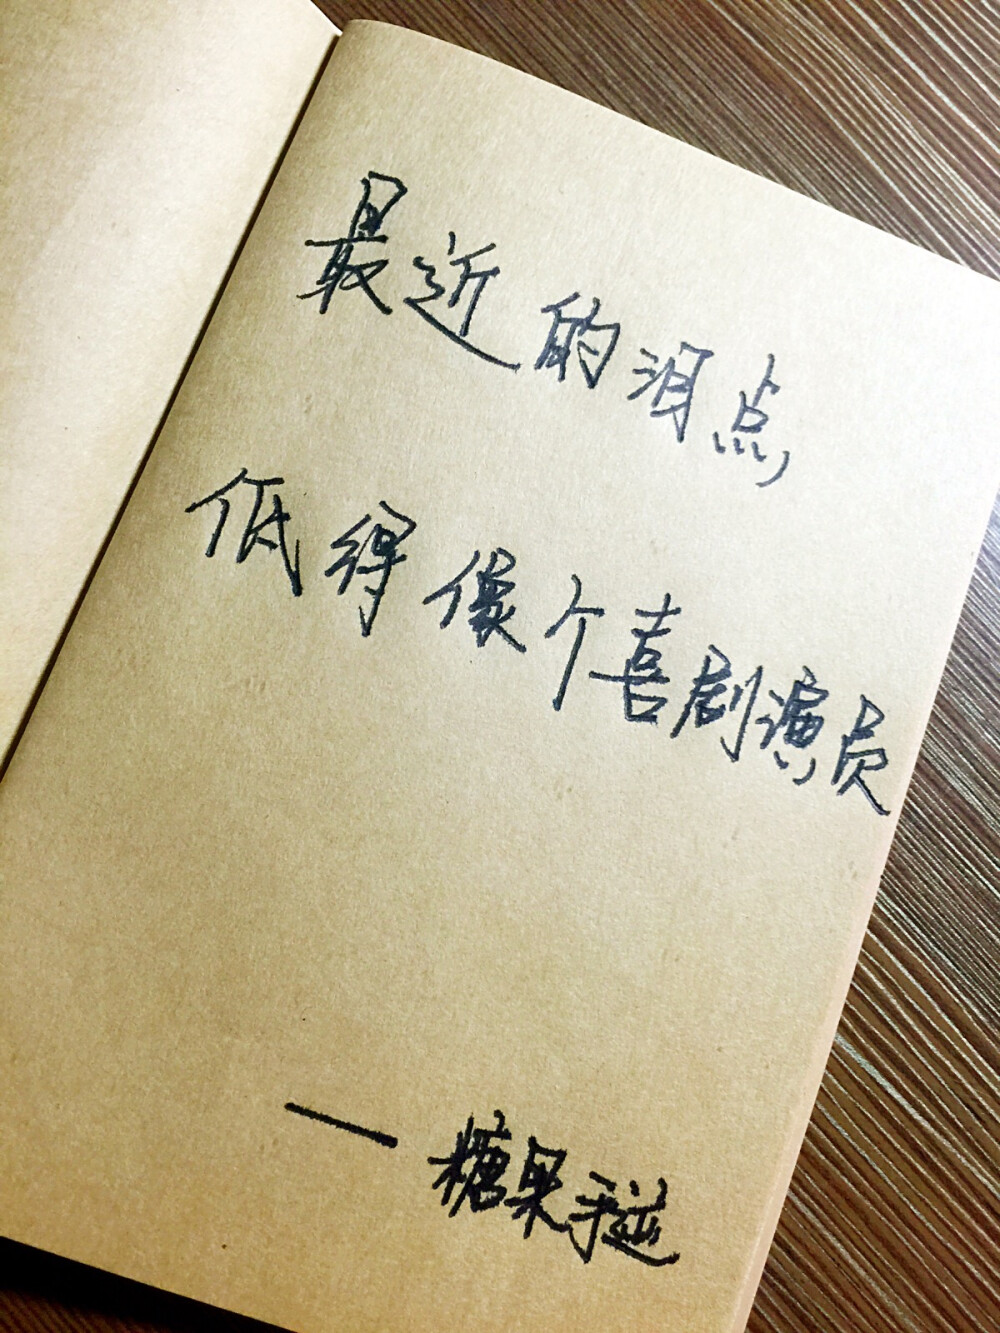 最近的泪点
低得像个喜剧演员
—糖果手迹